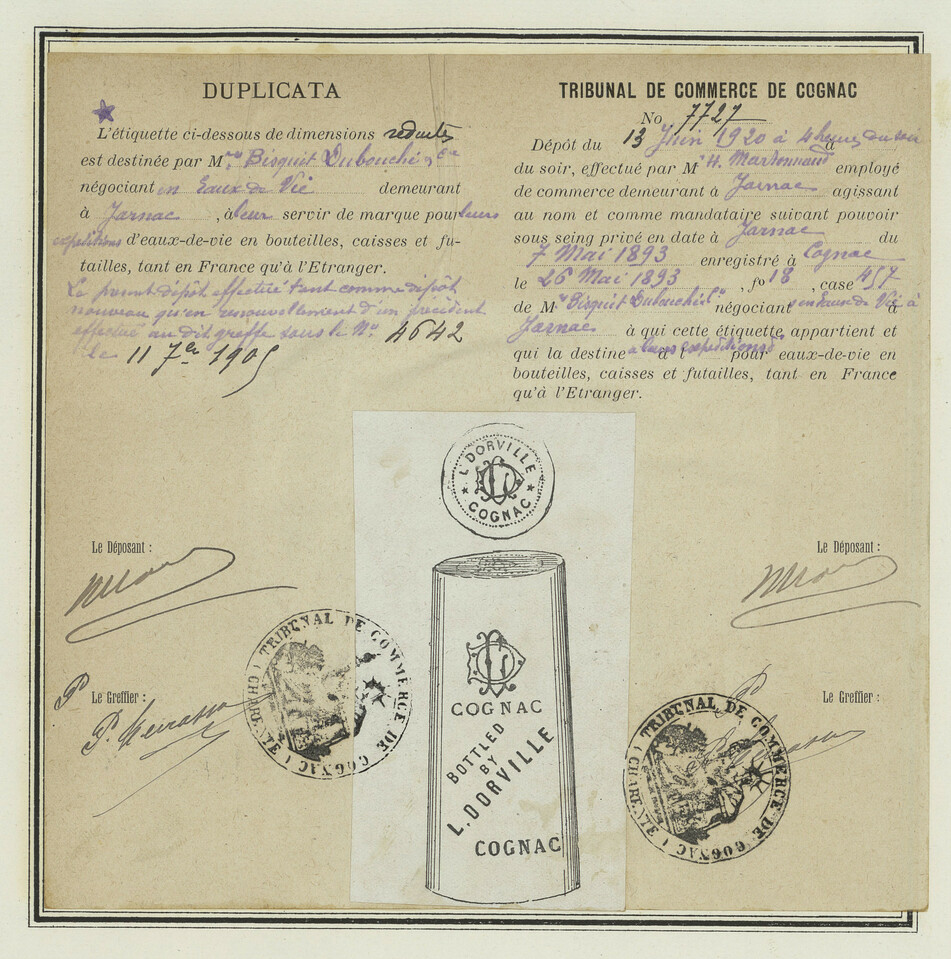 DUPLICATA
L'étiquette ci-dessous de dimensions reduites
est destinée par Mrs Bisquit Dubouché & Ce
négociant en Eaux de Vie demeurant
à Jarnac, à leur servir de marque pour leurs
expéditions d'eaux-de-vie en bouteilles, caisses et fu-
tailles, tant en France qu'à l'Etranger.
Le present dépôt effectué tant comme dépôt
nouveau qu'en renouvellement d'un précédent
effectué au dit greffe sous le No. 4642
le 11 7re 1905
TRIBUNAL DE COMMERCE DE COGNAC
No 7727
Dépôt du 13 Juin 1920 à 4 heures du soir
du soir, effectué par Mr H. employé
de commerce demeurant à Jarnac agissant
au nom et comme mandataire suivant pouvoir
sous seing privé en date à Jarnac du
7 Mai 1893 enregistré à Cognac
le 26 Mai 1893, fo 18, case 457
de Mrs Bisquit Dubouché négociants en Eaux de Vie à
Jarnac à qui cette étiquette appartient et
qui la destine à leurs expéditions d' pour eaux-de-vie en
bouteilles, caisses et futailles, tant en France
qu'à l'Etranger.
L. DORVILLE
COGNAC
COGNAC
BOTTLED
BY
L. DORVILLE
COGNAC
Le Déposant :
Le Greffier :
TRIBUNAL DE COMMERCE DE COGNAC (CHARENTE)
Le Déposant :
Le Greffier :
TRIBUNAL DE COMMERCE DE COGNAC (CHARENTE)